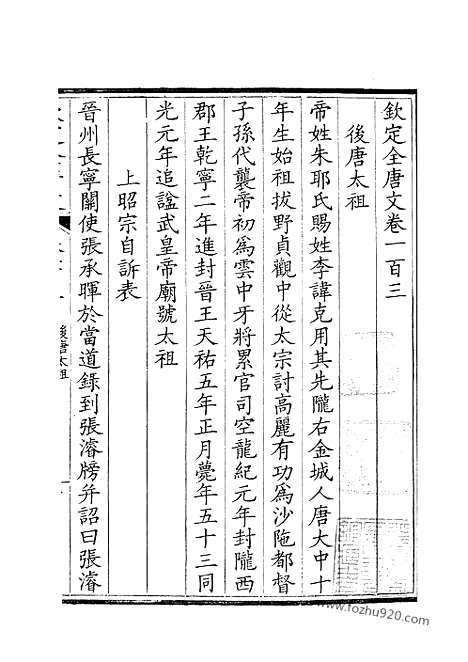 欽定全唐文卷一百三
後唐太祖
帝姓朱耶氏賜姓李諱克用其先隴右金城人唐大中十
年生始祖拔野貞觀中從太宗討高麗有功爲沙陁都督
子孫代襲帝初爲雲中牙將累官司空龍紀元年封隴西
郡王乾寧二年進封晉王天祐五年正月薨年五十三同
光元年追諡武皇帝廟號太祖
上昭宗自訴表
晉州長寧關使張承暉於當道錄到張濬牓幷詔曰張濬
後唐太祖
www.fozhu920.com